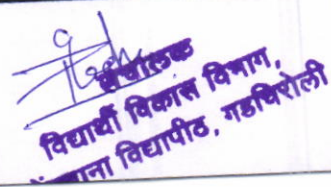 संचालक
विद्यार्थी विकास विभाग,
विद्यापीठ, गडचिरोली